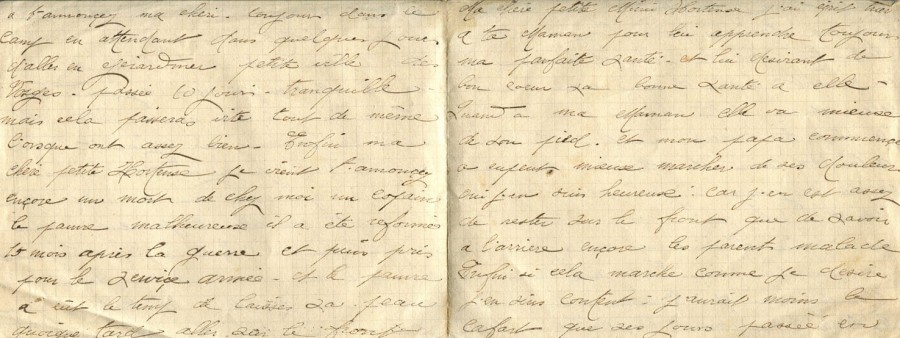 a t'amoncez ma chéri. toujour dans le
Camp en attendant dans quelques jours
d'aller en gerardmer petite ville des
Vosges. Passée 10 jours. tranquille
mais cela passeras vite tout de même
l'orsque ont assez bien. Enfin ma
chere petite Hortense je vient t'amoncez
encore un mort de chez moi un copain
le pauvre malheureuse il a été reformés
15 mois après la guerre et puis pris
pour le service armée. et le pauvre
a eut le temp de laisser sa peau
quoique tard aller sur le front
Ma chere petite Mimi Hortense j'ai écrit hier
a te Maman pour lui apprendre toujours
ma parfaite santé. et lui desirant de
bon coeur sa bonne santé a elle.
Quand a ma Maman elle va mieux
de son pied. et mon papa commence
a mieux marcher de ses douleurs
suis heureuse: car j'en est assez
de rester sur le front que de savoir
a l'arriere encore les parent malade
Enfin si cela marche comme je desire
j'en suis content: j'aurait moins le
cafart que ses jours passée en